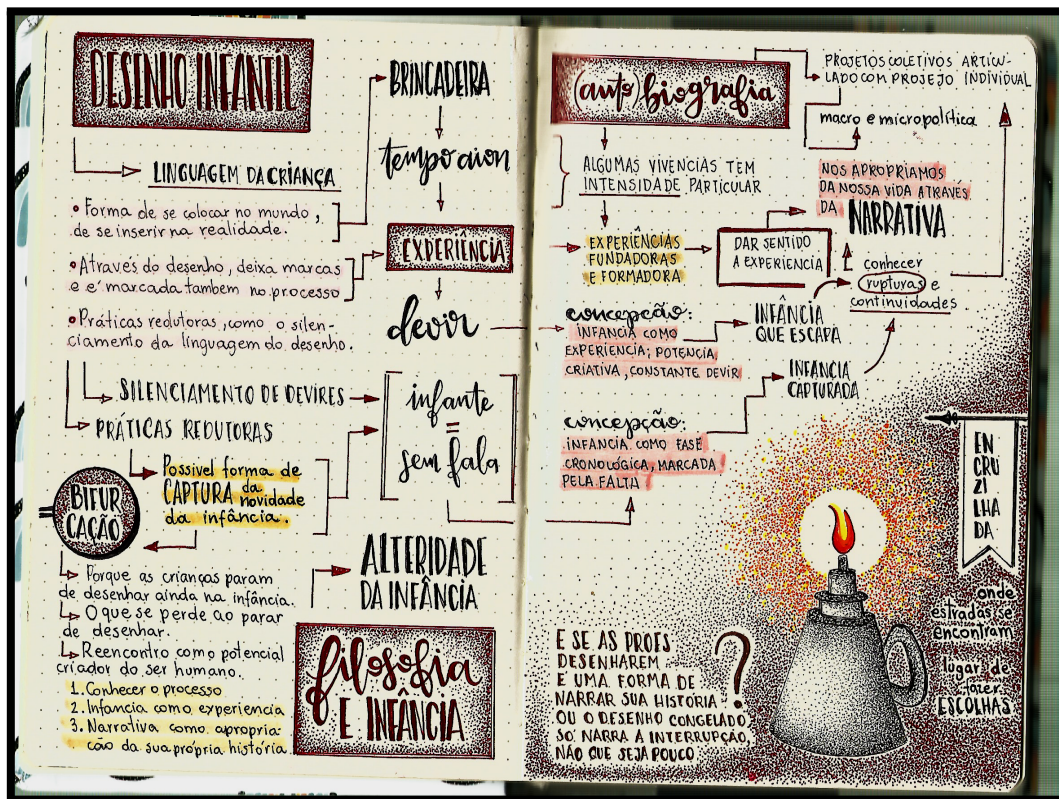 DESENHO INFANTIL
LINGUAGEM DA CRIANÇA
• Forma de se colocar no mundo,
de se inserir na realidade.
• Através do desenho, deixa marcas
e é marcada tambem no processo
• Práticas redutoras, como o silen-
ciamento da linguagem do desenho.
SILENCIAMENTO DE DEVIRES
PRÁTICAS REDUTORAS
Possivel forma de
CAPTURA da
novidade
da infância.
BIFUR
CAÇÃO
Porque as crianças param
de desenhar ainda na infância.
O que se perde ao parar
de desenhar.
Reencontro como potencial
criador do ser humano.
1. Conhecer o processo
2. Infancia como experiencia
3. Narrativa como apropria
ção da sua própria história
BRINCADEIRA
tempo aion
EXPERIÊNCIA
devir
infante
=
sem fala
ALTERIDADE
DA INFÂNCIA
filosofia
E INFÂNCIA
(auto)biografia
PROJETOS COLETIVOS ARTICU-
LADO COM PROJEJO INDIVIDUAL
macro e micropolítica
ALGUMAS VIVÊNCIAS TEM
INTENSIDADE PARTICULAR
NOS APROPRIAMOS
DA NOSSA VIDA ATRAVÉS
DA NARRATIVA
EXPERIÊNCIAS
FUNDADORAS
E FORMADORA
DAR SENTIDO
A EXPERIÊNCIA
conhecer
rupturas e
continuidades
concepção:
INFANCIA COMO
EXPERIENCIA; POTENCIA
CRIATIVA, CONSTANTE DEVIR
INFÂNCIA
QUE ESCAPA
INFANCIA
CAPTURADA
concepção:
INFANCIA COMO FASE
CRONOLÓGICA, MARCADA
PELA FALTA
EN
CRU
ZI
LHA
DA
onde
estradas se
encontram
lugar de
fazer
ESCOLHAS
E SE AS PROFS
DESENHAREM
E UMA FORMA DE
NARRAR SUA HISTÓRIA
OU O DESENHO CONGELADO
SO NARRA A INTERRUPÇÃO,
NÃO QUE SEJA POUCO
?